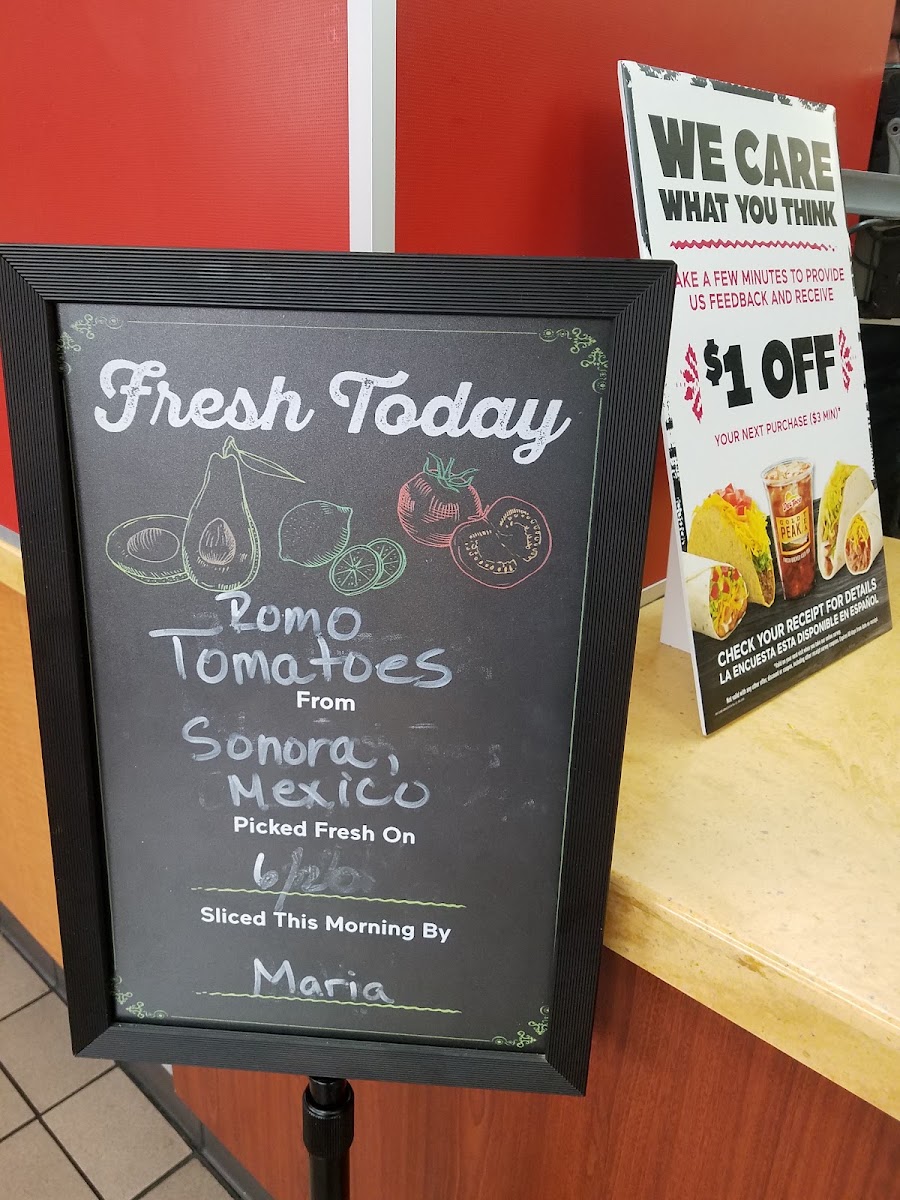 Fresh Today
Romo
Tomatoes
From
Sonora,
Mexico
Picked Fresh On
Sliced This Morning By
Maria
WE CARE
WHAT YOU THINK
AKE A FEW MINUTES TO PROVIDE
US FEEDBACK AND RECEIVE
$1 OFF
YOUR NEXT PURCHASE ($3 MIN)*
GOLD
PEAK
CHECK YOUR RECEIPT FOR DETAILS
LA ENCUESTA ESTA DISPONIBLE EN ESPAÑOL